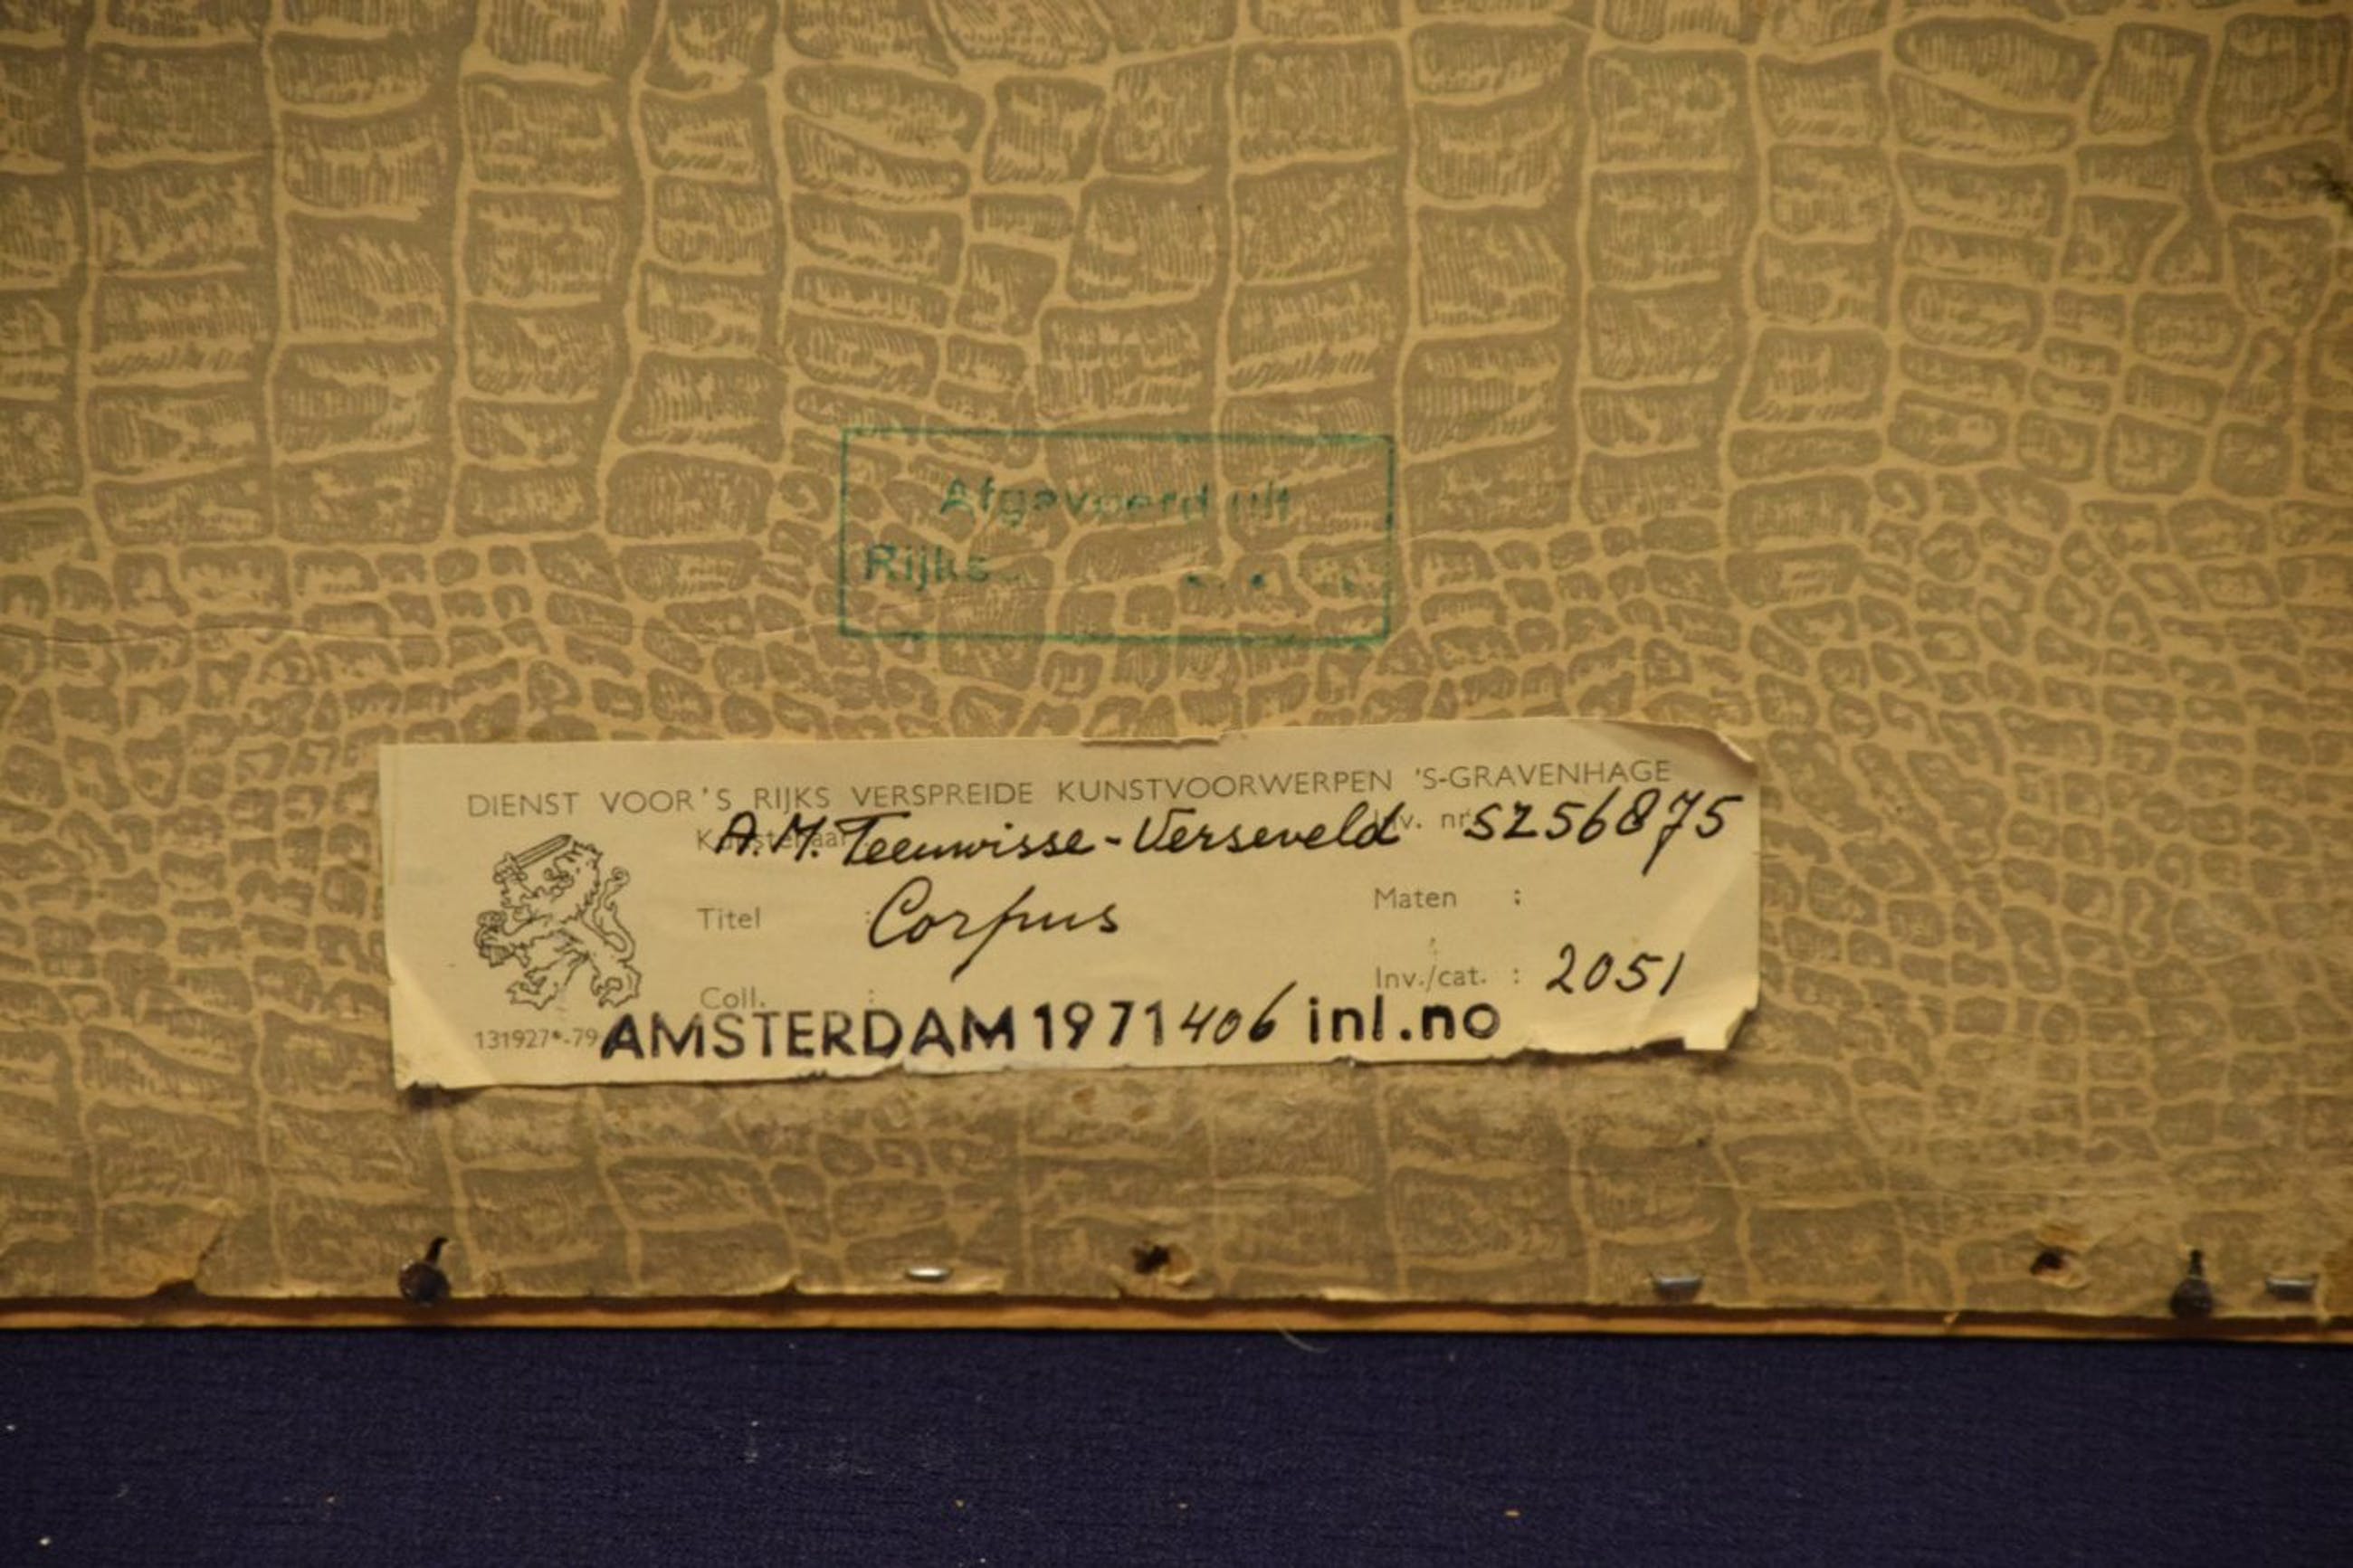 Afgevoerd uit
Rijks
DIENST VOOR 'S RIJKS VERSPREIDE KUNSTVOORWERPEN 'S-GRAVENHAGE
Kunstenaar A.M. Teeuwisse-Verseveld Inv. nr. SZ56875
Titel : Corpus Maten :
Coll. : Inv./cat. : 2051
131927*-79 AMSTERDAM 1971 406 inl.no